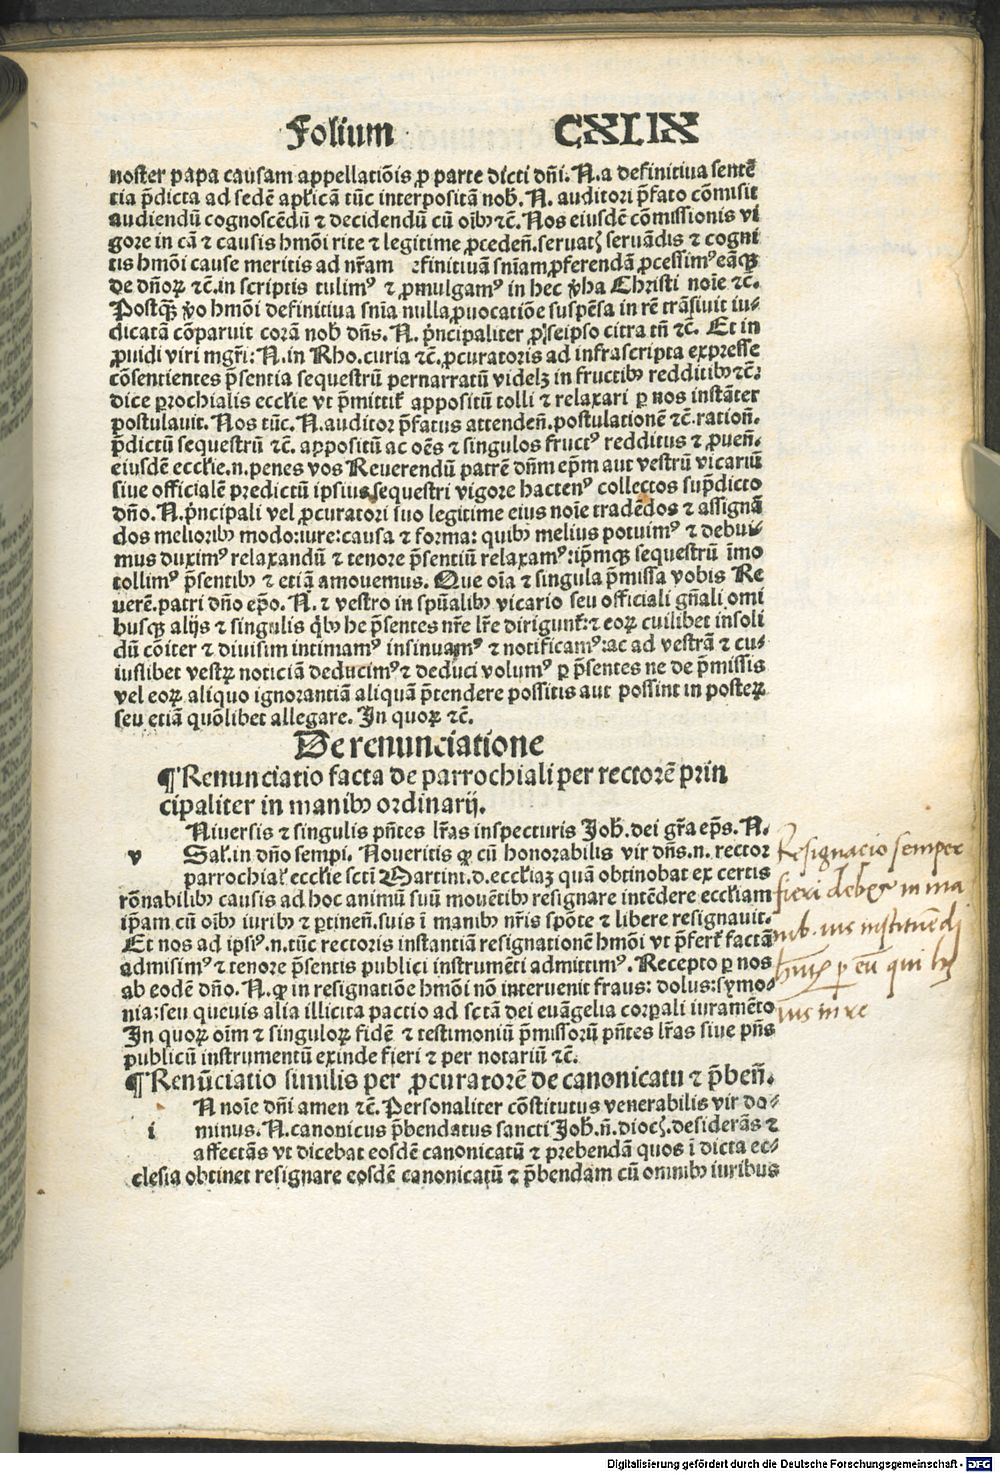 Folium CXLIX
noster papa causam appellatiōis ꝓ parte dicti dn̄i. N. a definitiua sentē
tia p̄dicta ad sedē apl̓icā tūc interpositam nob̓. N. auditori p̄fato cōmisit
audiendū cognoscēdū ⁊ decidendū cū oīb⁹ ⁊c̄. Nos eiusdē cōmissionis vi
gore in cā ⁊ causis hmōi rite ⁊ legitime ꝓceden̄. seruatꝭ seruādis ⁊ cogni
tis hmōi cause meritis ad nr̄am efinitiuā sn̄iam ꝓferendā ꝓcessim⁹ eāqꝫ
de dn̄oꝝ ⁊c̄. in scriptis tulim⁹ ⁊ ꝓmulgam⁹ in hec v̓ba Christi noīe ⁊c̄.
Postqꝫ v̓o hmōi definitiua sn̄ia nulla ꝓuocatiōe suspēsa in rē trāsiuit iu⸗
dicatā cōparuit corā nob̓ dn̄s. N. p̓ncipaliter ꝓ seipso citra tn̄ ⁊c̄. Et in
ꝓuidi viri mgr̄i: N. in Rho. curia ⁊c̄. ꝓcuratoris ad infrascripta expresse
cōsentientes p̄sentia sequestrū pernarratū videlꝫ in fructib⁹ redditib⁹ ⁊c̄:
dice ꝑrochialis eccl̓ie vt p̄mittit̓ appositū tolli ⁊ relaxari ꝑ nos instāter
postulauit. Nos tūc. N. auditor p̄fatus attenden̄. postulationē ⁊c̄. ration̄.
p̄dictū sequestrū ⁊c̄. appositū ac oēs ⁊ singulos fruct⁹ redditus ⁊ ꝓuen̄.
eiusdē eccl̓ie. n. penes vos Reuerendū patrē dn̄m ep̄m aut vestrū vicariū
siue officialē predictū ipsius sequestri vigore hacten⁹ collectos sup̄dicto
dn̄o. N. p̓ncipali vel ꝓcuratori suo legitime eius noīe tradēdos ⁊ assignā
dos meliorib⁹ modo: iure: causa ⁊ forma: quib⁹ melius potuim⁹ ⁊ debui⸗
mus duxim⁹ relaxandū ⁊ tenore p̄sentiū relaxam⁹: ip̄mqꝫ sequestrū īmo
tollim⁹ p̄sentib⁹ ⁊ etiā amouemus. Que oīa ⁊ singula p̄missa vobis Re
uerē. patri dn̄o ep̄o. N. ⁊ vestro in sp̄ualib⁹ vicario seu officiali gn̄ali omi
busqꝫ alijs ⁊ singulis qͥb⁹ he p̄sentes nr̄e lr̄e dirigunt̓: ⁊ eoꝝ cuilibet insoli
dū cōiter ⁊ diuisim intimam⁹ insinuam⁹ ⁊ notificam⁹: ac ad vestrā ⁊ cu⸗
iuslibet vestꝝ noticiā deducim⁹ ⁊ deduci volum⁹ ꝑ p̄sentes ne de p̄missis
vel eoꝝ aliquo ignorantiā aliquā p̄tendere possitis aut possint in posteꝝ
seu etiā quōlibet allegare. In quoꝝ ⁊c̄.
De renunciatione
¶ Renunciatio facta de parrochiali per rectorē prin
cipaliter in manib⁹ ordinarij.
Niuersis ⁊ singulis pn̄tes lr̄as inspecturis Joh̓. dei gr̄a ep̄s. N.
v Sal̓. in dn̄o sempi. Noueritis ꝙ cū honorabilis vir dn̄s. n. rector
parrochial̓ eccl̓ie sctī Martini. d. eccl̓iaꝫ quā obtinobat ex certis
rōnabilib⁹ causis ad hoc animū suū mouētib⁹ resignare intēdere eccl̓iam
ip̄am cū oīb⁹ iurib⁹ ⁊ ꝑtinen̄. suis ī manib⁹ nr̄is spōte ⁊ libere resignauit.
Et nos ad ipsi⁹. n. tūc rectoris instantiā resignationē hmōi vt p̄fert̓ factā
admisim⁹ ⁊ tenore p̄sentis publici instrumēti admittim⁹. Recepto ꝑ nos
ab eodē dn̄o. N. ꝙ in resignatiōe hmōi nō interuenit fraus: dolus: symo⸗
nia: seu queuis alia illicita pactio ad sctā dei euāgelia corꝑali iuramēto
In quoꝝ oīm ⁊ singuloꝝ fidē ⁊ testimoniū p̄missorū pn̄tes lr̄as siue pn̄s
publicū instrumentū exinde fieri ⁊ per notariū ⁊c̄.
¶ Renūciatio similis per ꝓcuratorē de canonicatu ⁊ p̄ben̄.
N noīe dn̄i amen ⁊c̄. Personaliter cōstitutus venerabilis vir do⸗
i minus. N. canonicus p̄bendatus sancti Joh̓. n̄. diocꝭ. desiderās ⁊
affectās vt dicebat eosdē canonicatū ⁊ prebendā quos ī dicta ec⸗
clesia obtinet resignare eosdē canonicatū ⁊ p̄bendam cū omnib⁹ iuribus
Resignacio semper
fieri debet in ma
nib. ius instituēdi
hn̄tis ꝑ eū qui hꝫ
ius in re
Digitalisierung gefördert durch die Deutsche Forschungsgemeinschaft - DFG